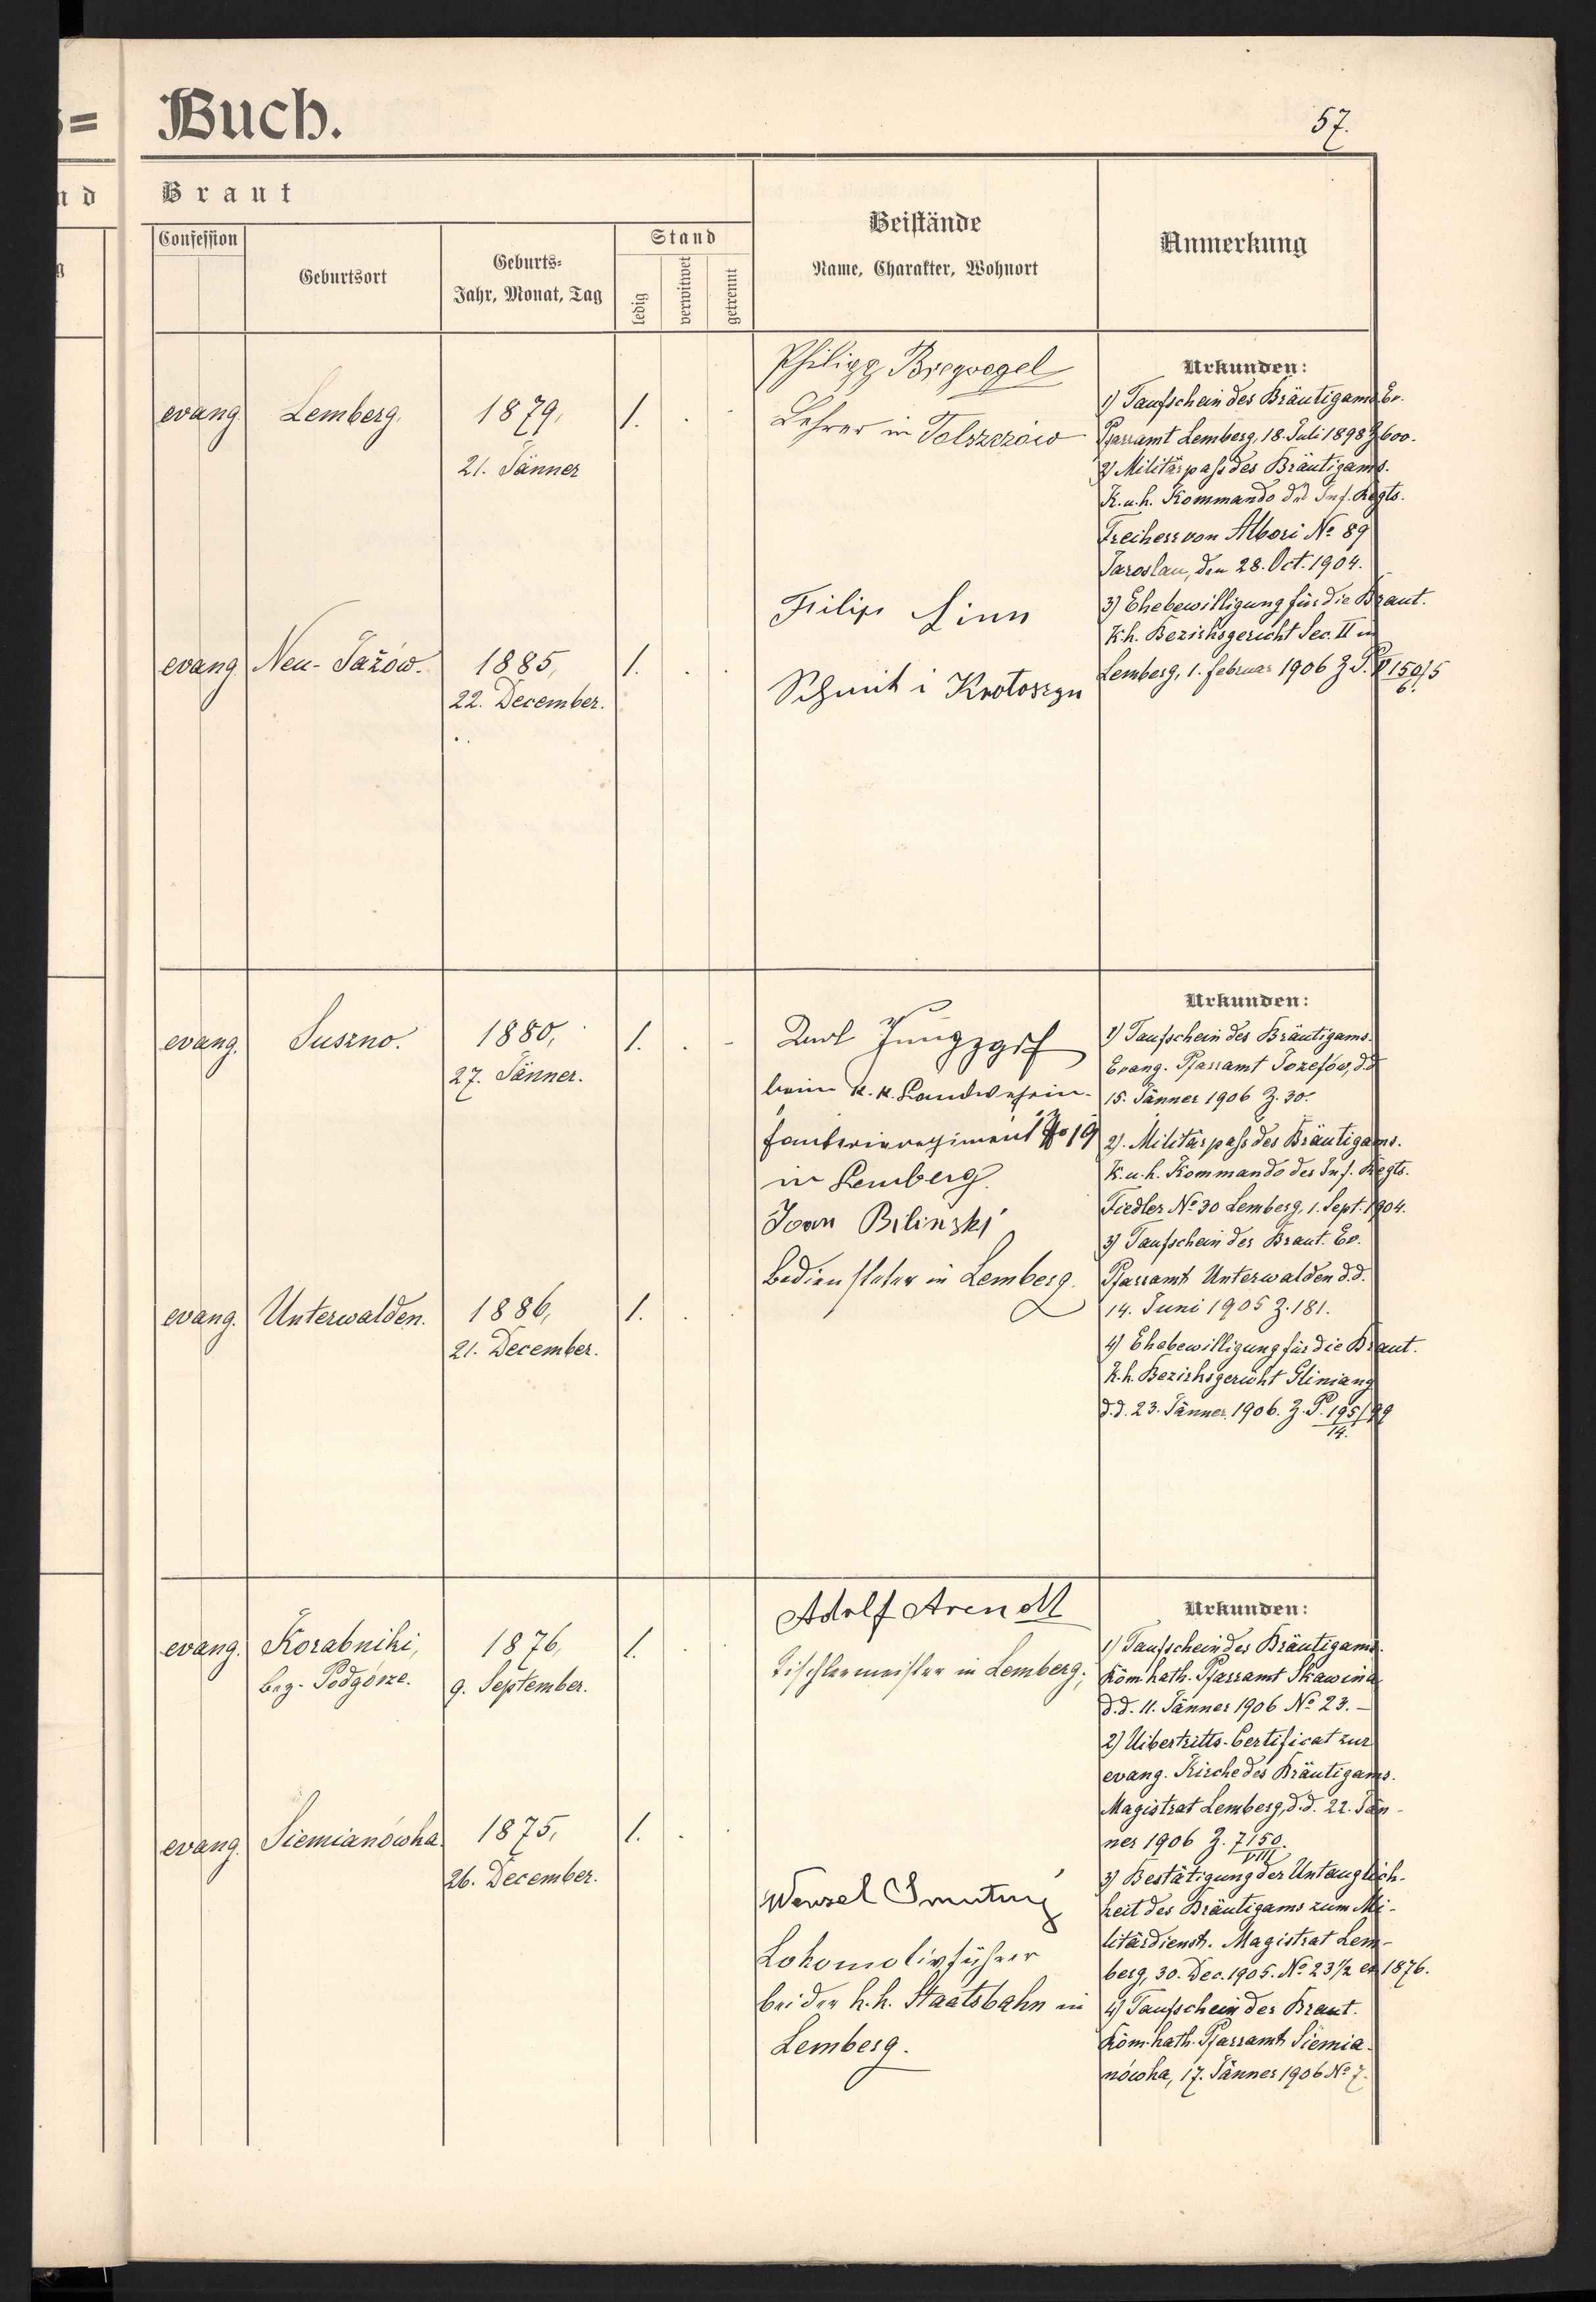 Buch.
57.
Braut
Confession
Geburtsort
Geburts-
Jahr, Monat, Tag
Stand
ledig
verwitwet
getrennt
Beistände
Name, Charakter, Wohnort
Anmerkung
evang.
Lemberg.
1879,
21. Jänner
1.
Philipp
Lehrer in Tolszczów
Urkunden:
1) Taufschein des Bräutigams Ev.
Pfarramt Lemberg, 18. Juli 1898 Z 600.
2) Militärpass des Bräutigams.
K. u. k. Kommando des Inf. Regts.
Freiherr von Albori No 89
Jaroslau, den 28. Oct. 1904.
3) Ehebewilligung für die Braut.
K. k. Bezirksgericht Sec. II in
Lemberg, 1. Februar 1906 Z. P. 150/5
6.
evang.
Neu-Jažów.
1885,
22. December.
1.
Filip Linn
Schmit i Krotoszyn
evang.
Suszno.
1880,
27. Jänner.
1.
beim k. k. Landwehrin-
fanterieregiment No 19
in Lemberg.
Joan Bilinski
Bediensteter in Lemberg.
Urkunden:
1) Taufschein des Bräutigams.
Evang. Pfarramt Jozefów, d.d
15. Jänner 1906 Z. 30.
2). Militärpass des Bräutigams.
K. u. k. Kommando des Inf. Regts.
Fiedler No 30 Lemberg, 1. Sept. 1904.
3) Taufschein der Braut. Ev.
Pfarramt Unterwalden d.d.
14. Juni 1905 Z. 181.
4) Ehebewilligung für die Braut.
K. k. Bezirksgericht Gliniany
d.d. 23. Jänner 1906. Z. P. 195/99
14.
evang.
Unterwalden.
1886,
21. December.
1.
evang.
Korabniki,
bez. Podgórze.
1876,
9. September.
1.
Adolf Arendt
Tischlermeister in Lemberg;
Urkunden:
1) Taufschein des Bräutigams.
Röm. kath. Pfarramt Skawina
d.d. 11. Jänner 1906 No 23. –
2) Uibertritts-Certificat zur
evang. Kirche des Bräutigams.
Magistrat Lemberg, d.d. 22. Jän-
ner 1906 Z. 7150.
VIII
3) Bestätigung der Untauglich-
keit des Bräutigams zum Mi-
litärdienst. Magistrat Lem-
berg, 30. Dec. 1905. No 23 1/2 ex 1876.
4) Taufschein der Braut.
Röm. kath. Pfarramt Siemia-
nówka, 17. Jänner 1906 No 7.
evang.
Siemianówka.
1875,
26. December.
1.
Wenzel
Lokomotivführer
bei der k. k. Staatsbahn in
Lemberg.